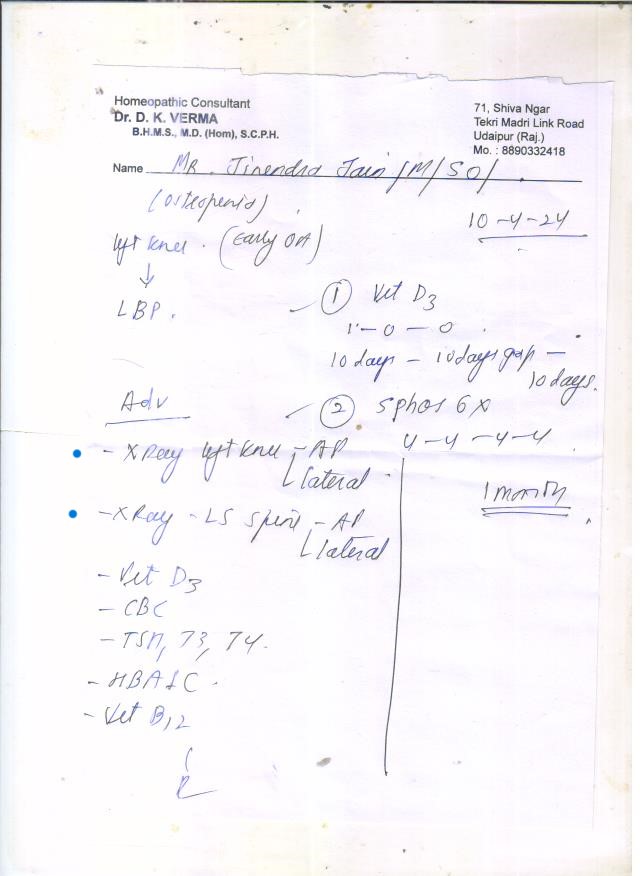 Homeopathic Consultant
Dr. D. K. VERMA
B.H.M.S., M.D. (Hom), S.C.P.H.
71, Shiva Ngar
Tekri Madri Link Road
Udaipur (Raj.)
Mo. : 8890332418
Name Mr. Jinendra Jain /M/50/
(osteopenia)
10-4-24
left knee. (Early OA)
↓
LBP.
① Vit D3
1-0-0
10 days - 10 days gap -
10 days.
② 5 phos 6x
4-4-4-4
1 month
Adv
- X Ray left knee - AP
lateral
- X Ray - LS Spine - AP
lateral
- Vit D3
- CBC
- TSH, T3, T4.
- HBA1C.
- Vit B12